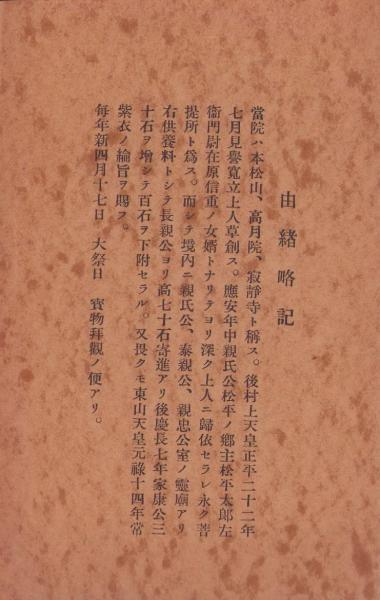 由緒略記
當院ハ本松山、高月院、寂靜寺ト稱ス。後村上天皇正平二十二年
七月見譽寛立上人草創ス。應安年中親氏公松平ノ鄕主松平太郎左
衞門尉在原信重ノ女婿トナリテヨリ深ク上人ニ歸依セラレ永ク菩
提所ト爲ス。而シテ境内ニ親氏公、泰親公、親忠公室ノ靈廟アリ
右供養料トシテ長親公ヨリ高七十石寄進アリ後慶長七年家康公三
十石ヲ增シテ百石ヲ下附セラル。又畏クモ東山天皇元祿十四年常
紫衣ノ綸旨ヲ賜フ。
每年新四月十七日　大祭日　寶物拜觀ノ便アリ。